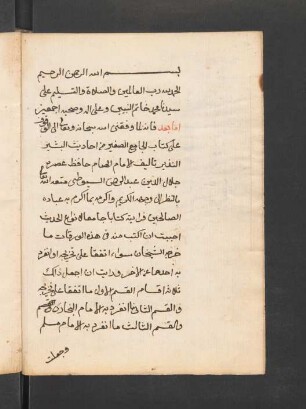 بسم الله الرحمن الرحيم
الحمد لله رب العالمين والصلاة والتسليم على
سيدنا محمد خاتم النبيين وعلى اله وصحبه اجمعين
اما بعد فانه لما وفقني الله سبحانه وتعالى الى الوقوف
على كتاب الجامع الصغير من احاديث البشير
النذير تاليف الامام الهمام حافظ عصره
جلال الدين عبد الرحمن السيوطي متعه الله تعالى
بالنظر الى وجهه الكريم واكرمه بما اكرم به عباده
الصالحين فرايته كتابا جامعا لانواع الحديث
احببت ان اكتب منه في هذه الورقات ما
خرجه الشيخان سواء اتفقا على تخريجه او انفرد
به احدهما عن الاخر ورايت ان اجعل ذلك
ثلاثة اقسام القسم الاول ما اتفقا على تخريجه
والقسم الثاني ما انفرد به الامام البخاري
والقسم الثالث ما انفرد به الامام مسلم
وجعلت